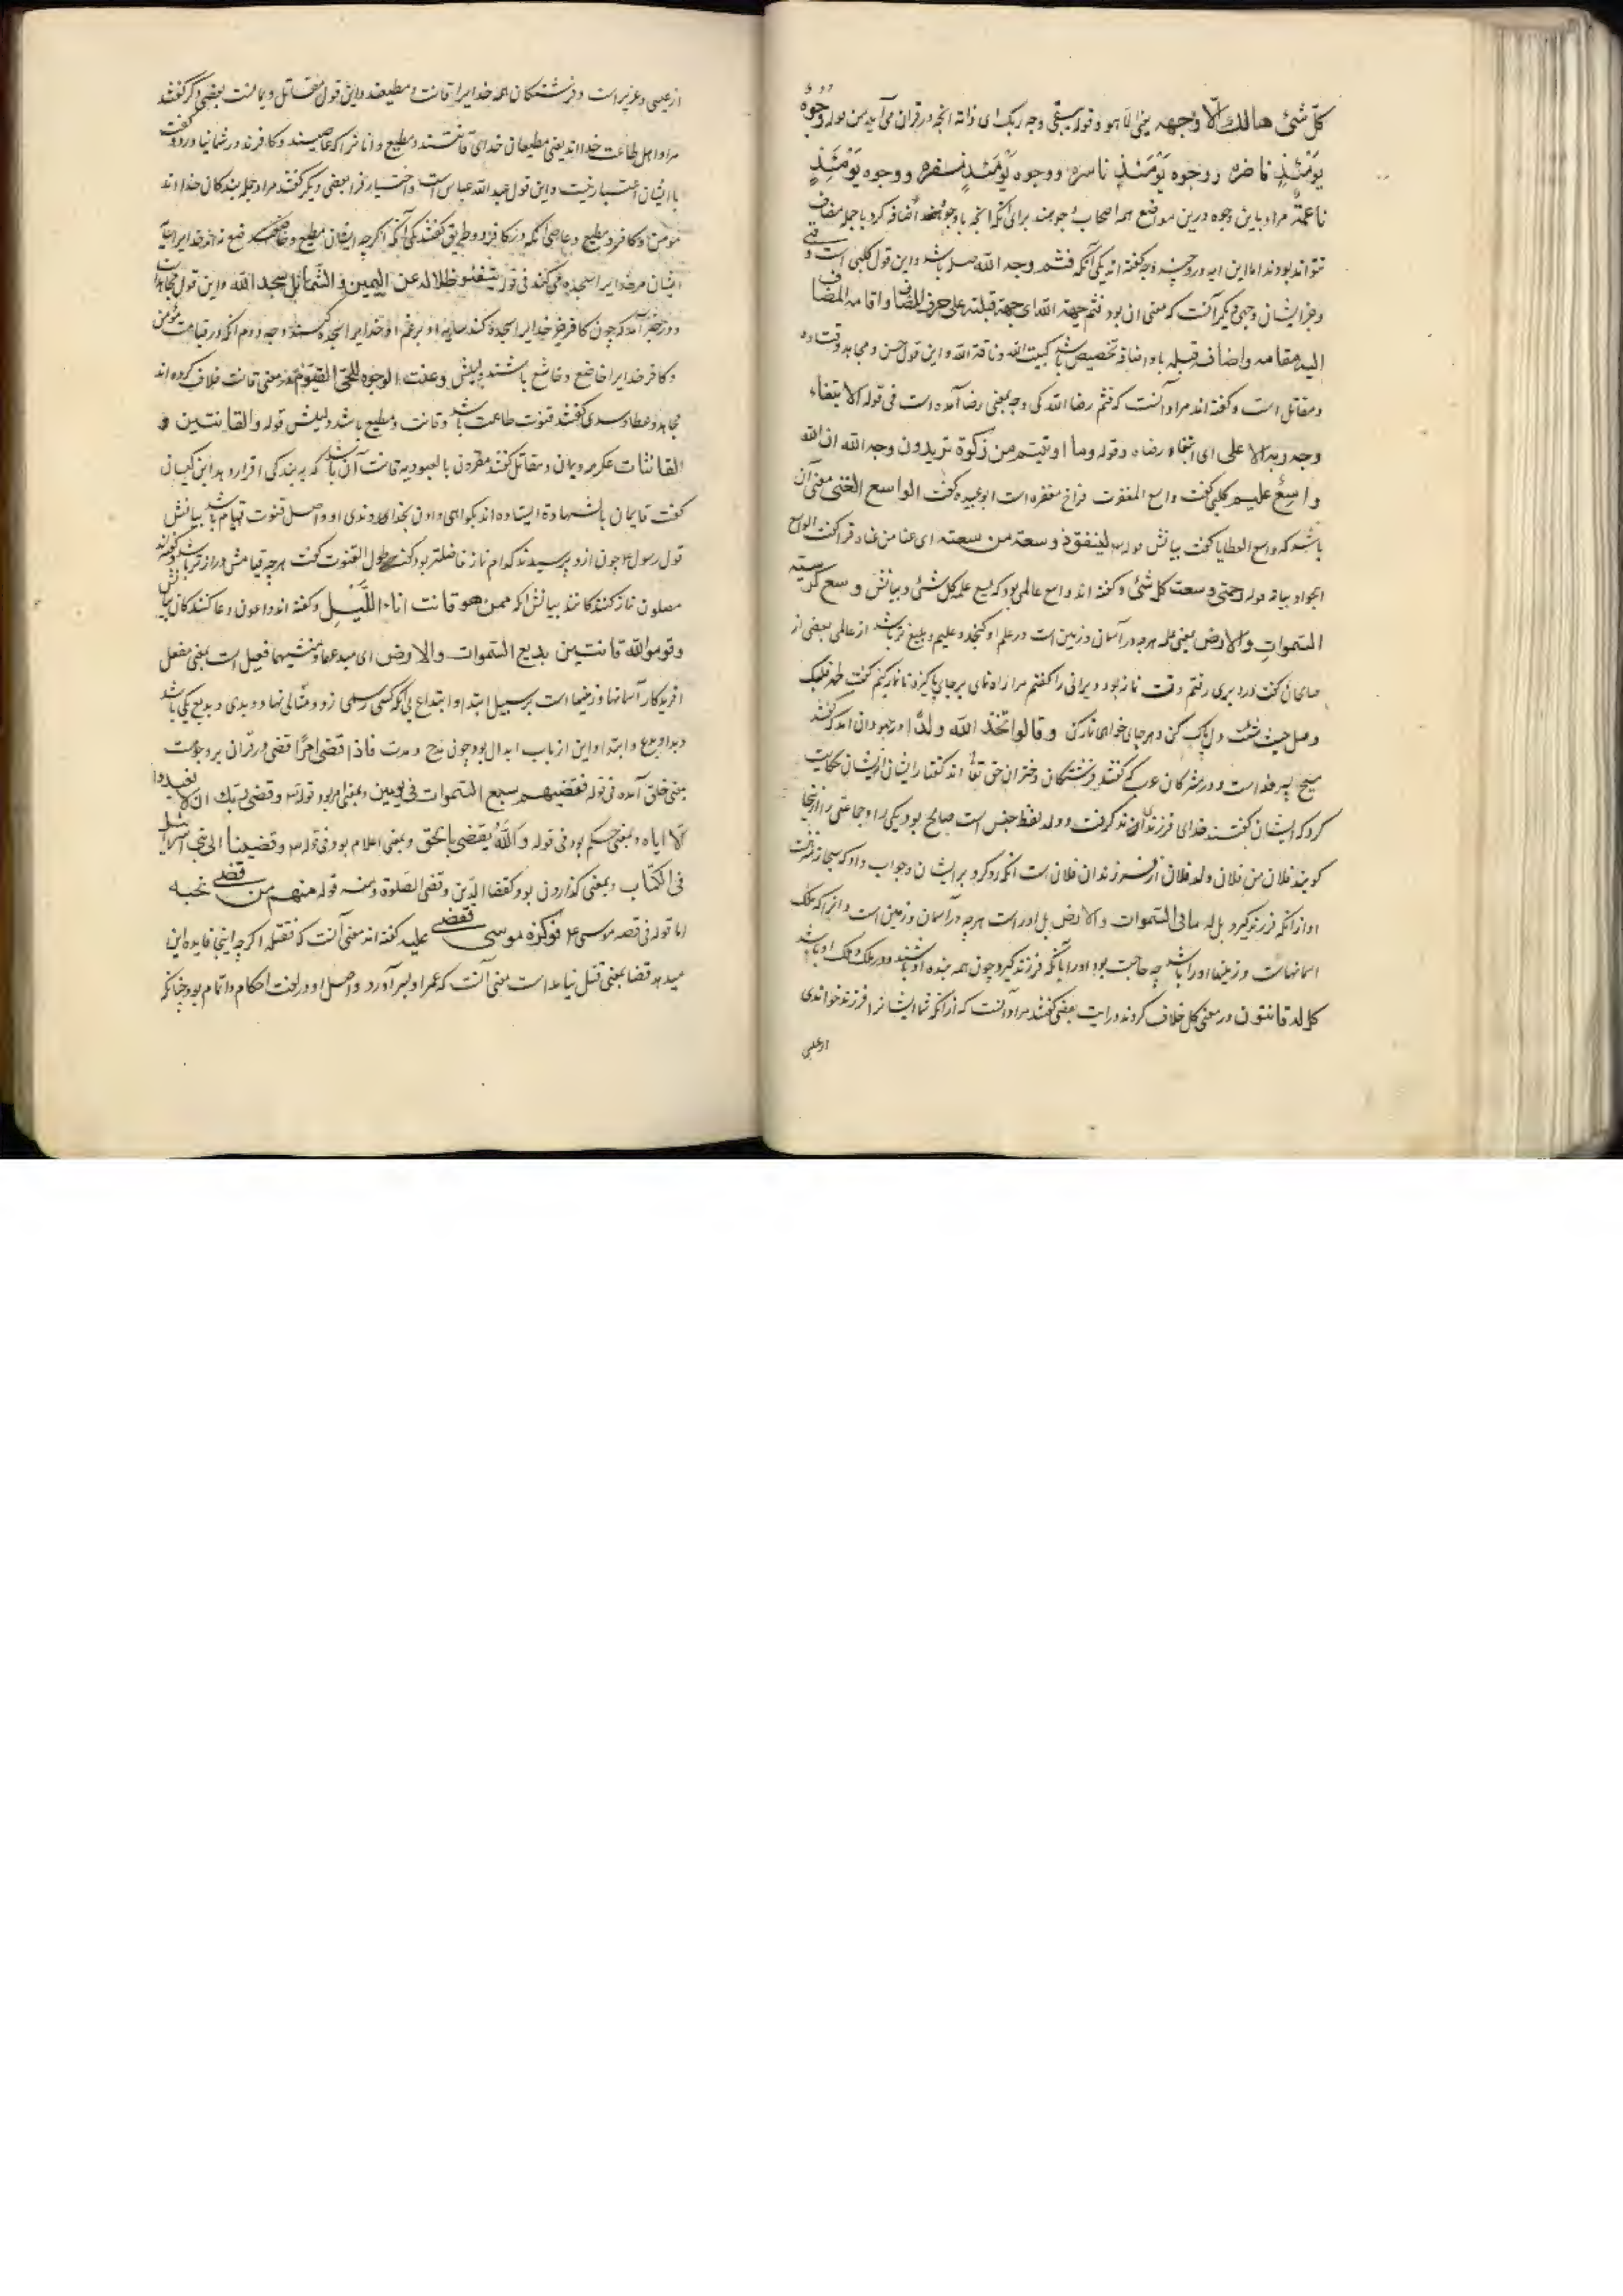 كلّ شئ هالك الّا وجهه یعنی الا هو و قوله یبقی وجه ربک ای ذاته انچه در قران می آید من قوله وجوه
یومئذٍ ناضره و وجوه یومئذٍ ناسره و وجوه یومئذٍ مسفره و وجوه یومئذٍ
ناعمة مراد باین وجوه درین مواضع همه اصحاب وجوهند برای آنکه انچه با وجوه اضافه کرد با جمله مضاف
نتواند بودن اما این ایه در و چند وجه گفته اند یکی آنکه فثم وجه الله صله باشد و این قول کلبی است و
و غیر ایشان وجهی دیگر آنست که معنی ان بود فثم جهة الله ای جهة قبلته علی حذف المضاف و اقامه المضاف
الیه مقامه و اضافه قبله با او اضافه تخصیص باشد کبیت الله و ناقة الله و این قول حسن و مجاهد و قتاده
و مقاتل است و گفته اند مراد آنست که فثم رضا الله کی وجه بمعنی رضا آمده است فی قوله الا ابتغاء
وجه ربه الاعلی ای ابتغاء رضاه و قوله وما اوتیتم من زکوة تریدون وجه الله ان الله
واسع علیم کلبی گفت واسع المغفرت فراخ مغفره است ابو عبیده گفت الواسع الغنی معنی آن
باشد که واسع العطایا گفت بیانش قوله لینفق ذو سعة من سعته ای غنا من غناه فرا گفت الواسع
الجواد بیانه قوله رحمتی وسعت کل شئ و گفته اند واسع عالمی بود که یسع علمه کل شئ و بیانش وسع کرسیه
السموات والارض یعنی علمه هرچه در آسمان و زمین است در علم او گنجد و علیم و بلیغ تر باشد از عالمی بعضی از
صالحان گفت در دیری رفتم وقت نماز بود دیرانی را گفتم مرا راه نمای برجای پاکیزه تا نماز کنم گفت طهر قلبک
و صل حیث شئت دل پاک کن و هرجای خواهی نماز کن وقالوا اتخذ الله ولدًا در جهودان امد که گفتند
مسیح پسر خداست و در مشرکان عرب که گفتند فرشتگان دختران حق تعالی اند گفتار ایشان از ایشان حکایت
کرد که ایشان گفتند خدای فرزندی فرزند گرفت و ولد لفظ جنس است صالح بود یکی را و جماعتی را از اینجا
گویند فلان من فلان و ولد فلان از فرزندان فلان است انگه رد کرد بر ایشان و جواب داد که سبحانه منزهست
او از انکه فرزند گیرد بل له مافی السموات والارض بل اوراست هرچه در آسمان و زمین است و انرا که ملک
اسمانهاست و زمینها اورا باشد چه حاجت بود اورا بانکه فرزند گیرد چون همه بنده او باشند و در ملک و ملک او باشد
کل له قانتون در معنی کل خلاف کردند در ایت بعضی گفتند مراد آنست که از انکه شما ایشانرا فرزند خواندی
از عیسی
از عیسی و عزیر است و فرشتگان همه خدایرا قانت و مطیعند و این قول مقاتل و یمانست بعضی دگر گفتند
مراد اهل طاعت خدا اند یعنی مطیعان خدای قانتند و مطیع و انانرا که عاصیند و کافرند در شمانیاورد و گفت
با ایشان اعتبار نیست و این قول عبد الله عباس است و اختیار فرا بعضی دیگر گفتند مراد جمله بندگان خدا اند
مومن و کافر و مطیع و عاصی انکه در کافر دو طریق گفتند یکی آنکه اگرچه ایشان مطیع و خاضع نه اند خدایرا سایه
ایشان مر خدایرا سجده می کند فی قوله یتفیؤ ظلاله عن الیمین والشمائل سجدا لله و این قول مجاهد است
و در خبر آمد که چون کافر غیر خدایرا سجده کند سایه او برغم او خدایرا سجده کند و وجه دوم انکه در قیامت مؤمن
و کافر خدایرا خاضع و خاشع باشند دلیلش وعنت الوجوه للحی القیوم در معنی قانت خلاف کرده اند
مجاهد و عطا و سدی گفتند قنوت طاعت باشد و قانت و مطیع باشد دلیلش قوله والقانتین و
القانتات عکرمه و یمان و مقاتل گفتند مقرون بالعبودیه قانت آن باشد که به بندگی اقرار دهد ابن کیسان
گفت قایمان بالشهادة ایستاده اند بگواهی دادن بخدا خداوندی او و اصل قنوت قیام باشد بیانش
قول رسول چون ازو پرسیدند کدام نماز فاضلتر بود گفت طول القنوت گفت هرچه قیامش دراز تر باشد و گفته اند
مصلون نماز کنندگانند بیانش امن هو قانت اناء اللیل و گفته اند داعون دعا کنندگان بیانش
وقوموا لله قانتین بدیع السموات والارض ای مبدعها و منشیها فعیل است بمعنی مفعل
افریدگار آسمانها و زمینها است برسبیل ابتدا و ابتداع بی انکه کسی رسمی زد و مثالی نهاد و بدی و بدیع یکی باشد
و بدا و بدع و ابتدا و این از باب ابدال بود چون مدح و مدت فاذا قضی امرًا قضی در قران بر وجوهست
بمعنی خلق آمده فی قوله فقضیهم سبع السموات فی یومین و بمعنی امر بود قوله وقضی ربک ان لا تعبدوا
الّا ایاه و بمعنی حکم بود فی قوله والله یقضی بالحق و بمعنی اعلام بود فی قوله وقضینا الی بنی اسرائیل
فی الکتاب و بمعنی گذاردن بود کقضا الدین و قضی الصلوة و منه قوله منهم من قضی نحبه
اما قوله فی قصه موسی فوکزه موسی فقضی علیه گفته اند معنی آنست که فقتله اگرچه اینجا فایده این
میدهد قضا بمعنی قتل نیامده است معنی آنست که عمر او بسر آورد و اصل او در لغت احکام و اتمام بود چنانکه